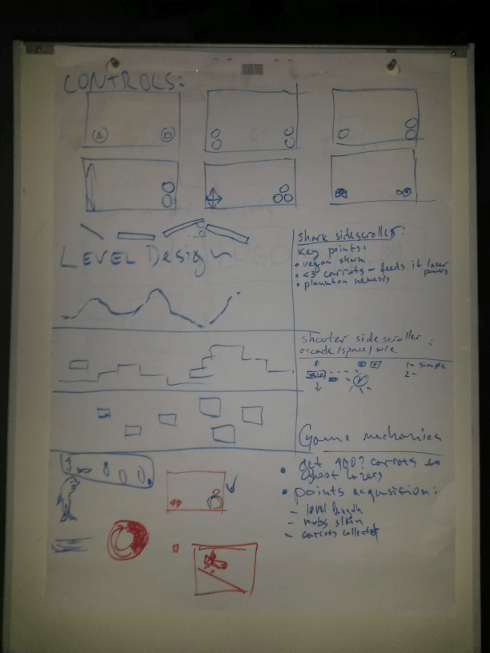 CONTROLS:
LEVEL Design
shark sidescroller:
key points:
• vegan shark
• <3 carrots - feeds it laser
powers
• plankton nemesis
shooter sidescroller:
arcade/space/
Game mechanics
• get carrots to
lasers
• points acquisition:
- level length
- mobs slain
- carrots collected